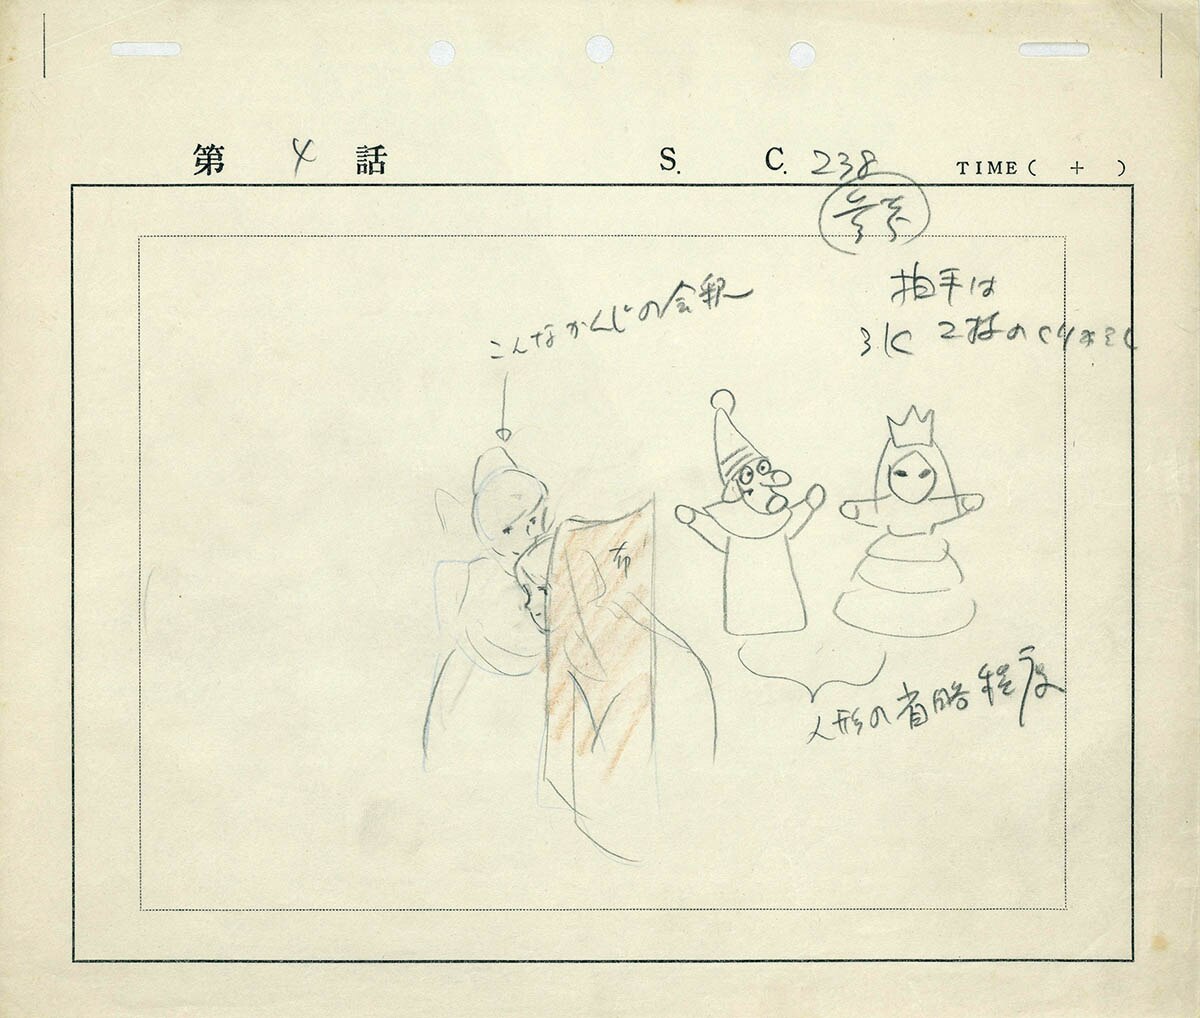 第 4 話 S. C. 238 TIME( + )
参考
こんなかんじの会釈
拍手は
3K 2枚のくりかえし
布
人形の省略程度